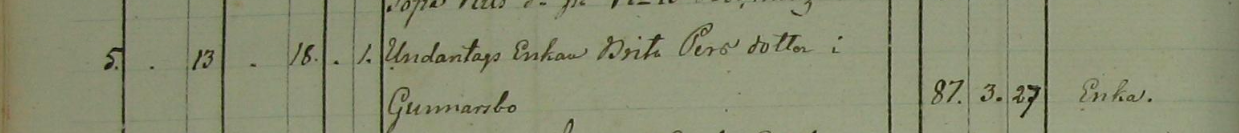 5. . 13 . 18. . 1. Undantags Enkan Brita Pers dotter i
Gunnarsbo 87. 3. 27 Enka.